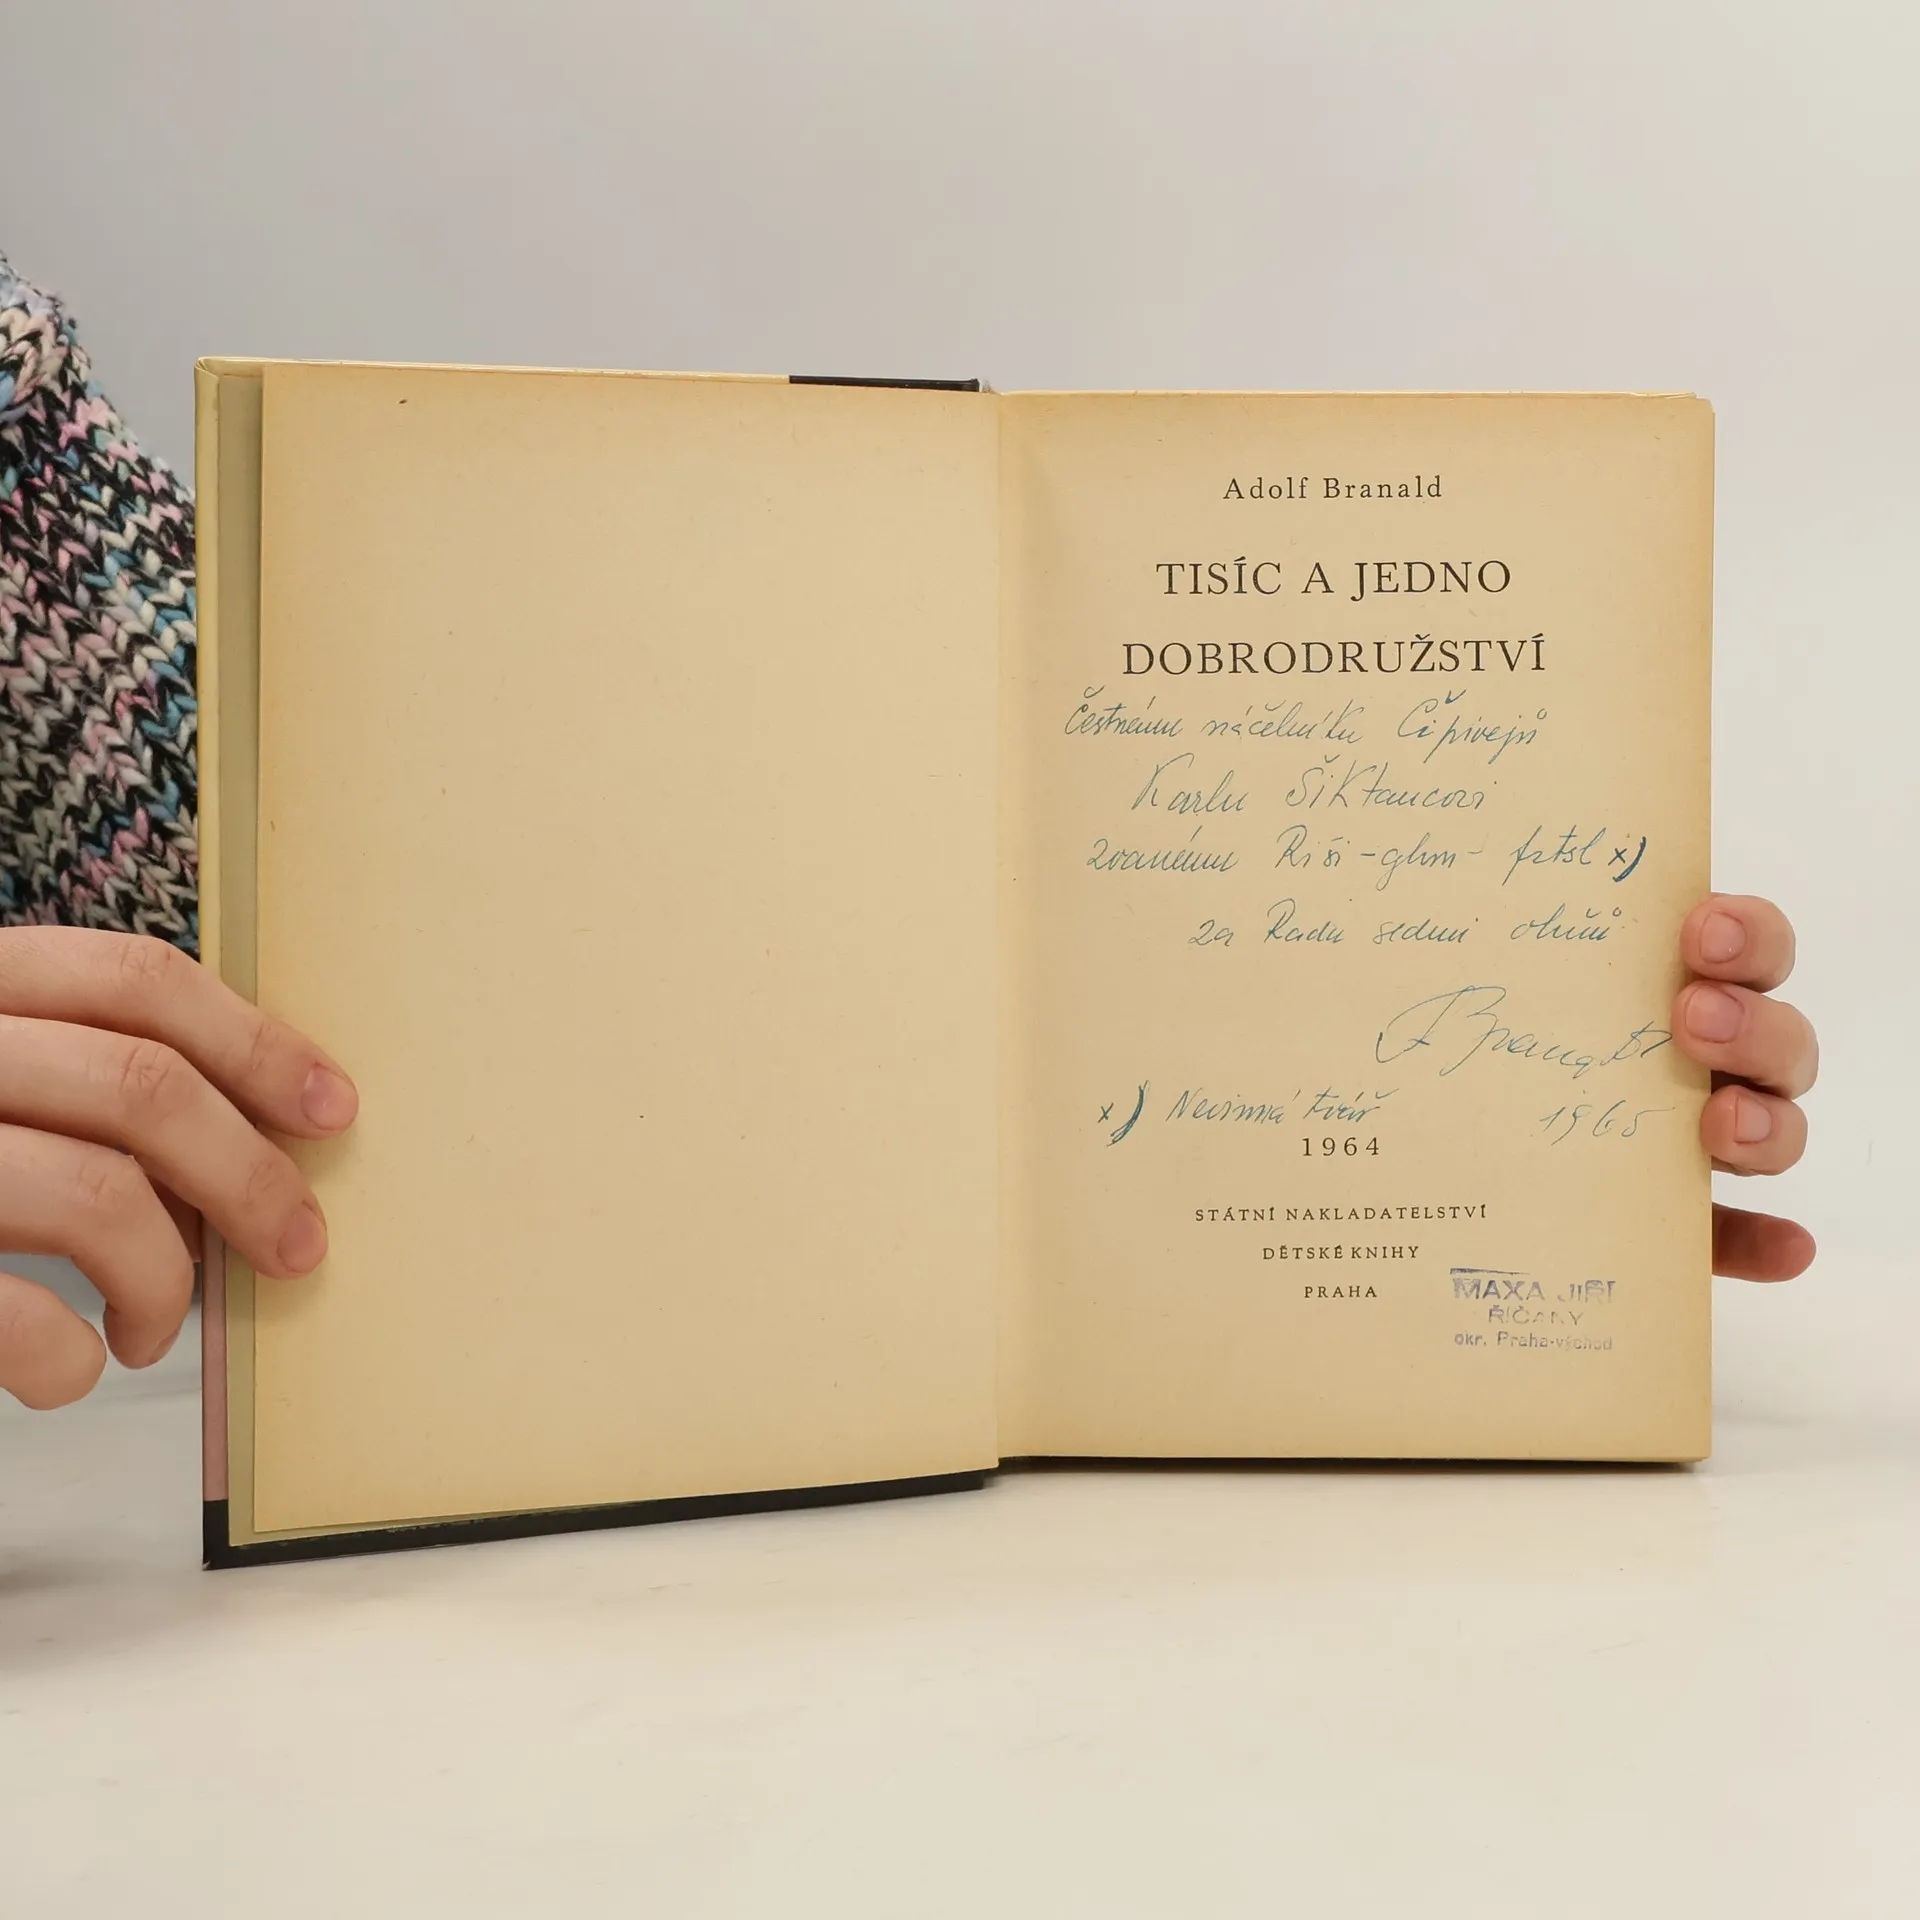 Adolf Branald
TISÍC A JEDNO
DOBRODRUŽSTVÍ
Čestnému náčelníku Čipivejů
Karlu Šiktancovi
zvanému Riši-ghm- fztsl x)
za Radu sedmi ohňů
A Branald
x) Nevinná tvář 1965
1964
STÁTNÍ NAKLADATELSTVÍ
DĚTSKÉ KNIHY
PRAHA
MAXA JIŘÍ
ŘÍČANY
okr. Praha-východ